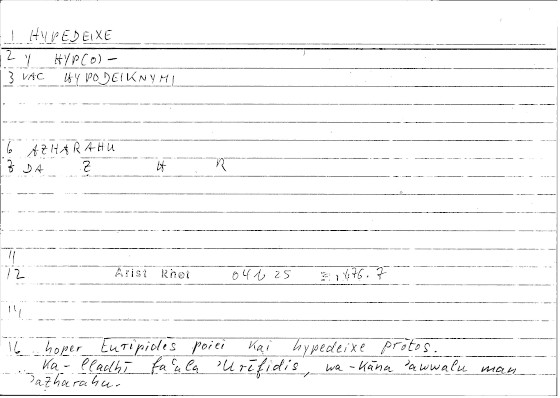 1 HYPEDEIXE
2 Y HYP(O)-
3 VAC HYPODEIKNYMI
6 AZHARAHU
7 DA Z H R
11
12 Arist Rhet 04b 25 176.7
14
16 hoper Euripides poiei kai hypedeixe prôtos.
Ka-lladhī faʿala ʾUrīfidīs, wa-kāna ʾawwalu man
ʾaẓharahu.